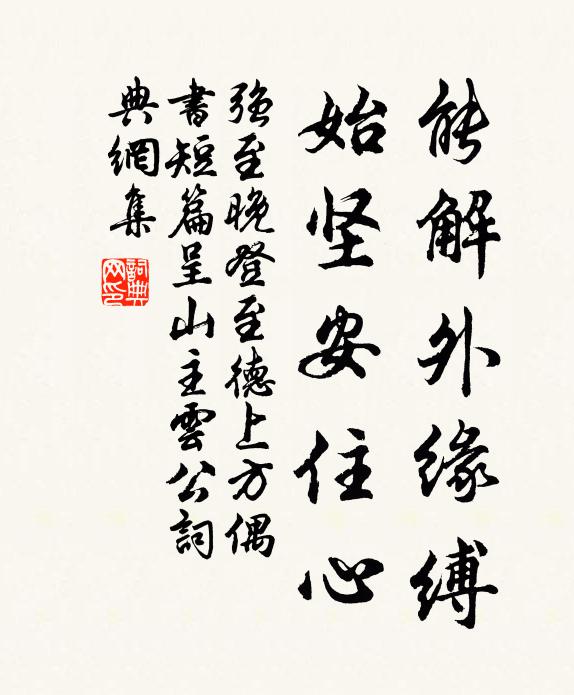 能解外缘缚
始坚安住心
強至晚登至德上方偶
書短篇呈山主雲公詞
典網集
詞典网印